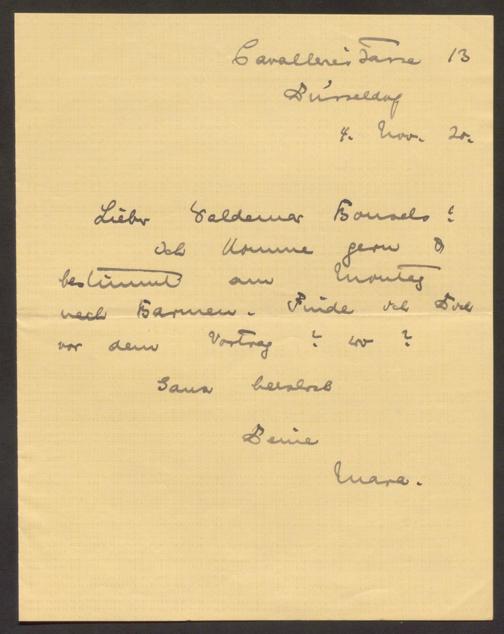 Cavalleriestrasse 13
Düsseldorf
4. Nov. 20.
Lieber Waldemar Bonsels!
ich komme gern &
bestimmt am Montag
nach Barmen. Finde ich Dich
vor dem Vortrag? wo?
Ganz herzlich
Deine
Mara.